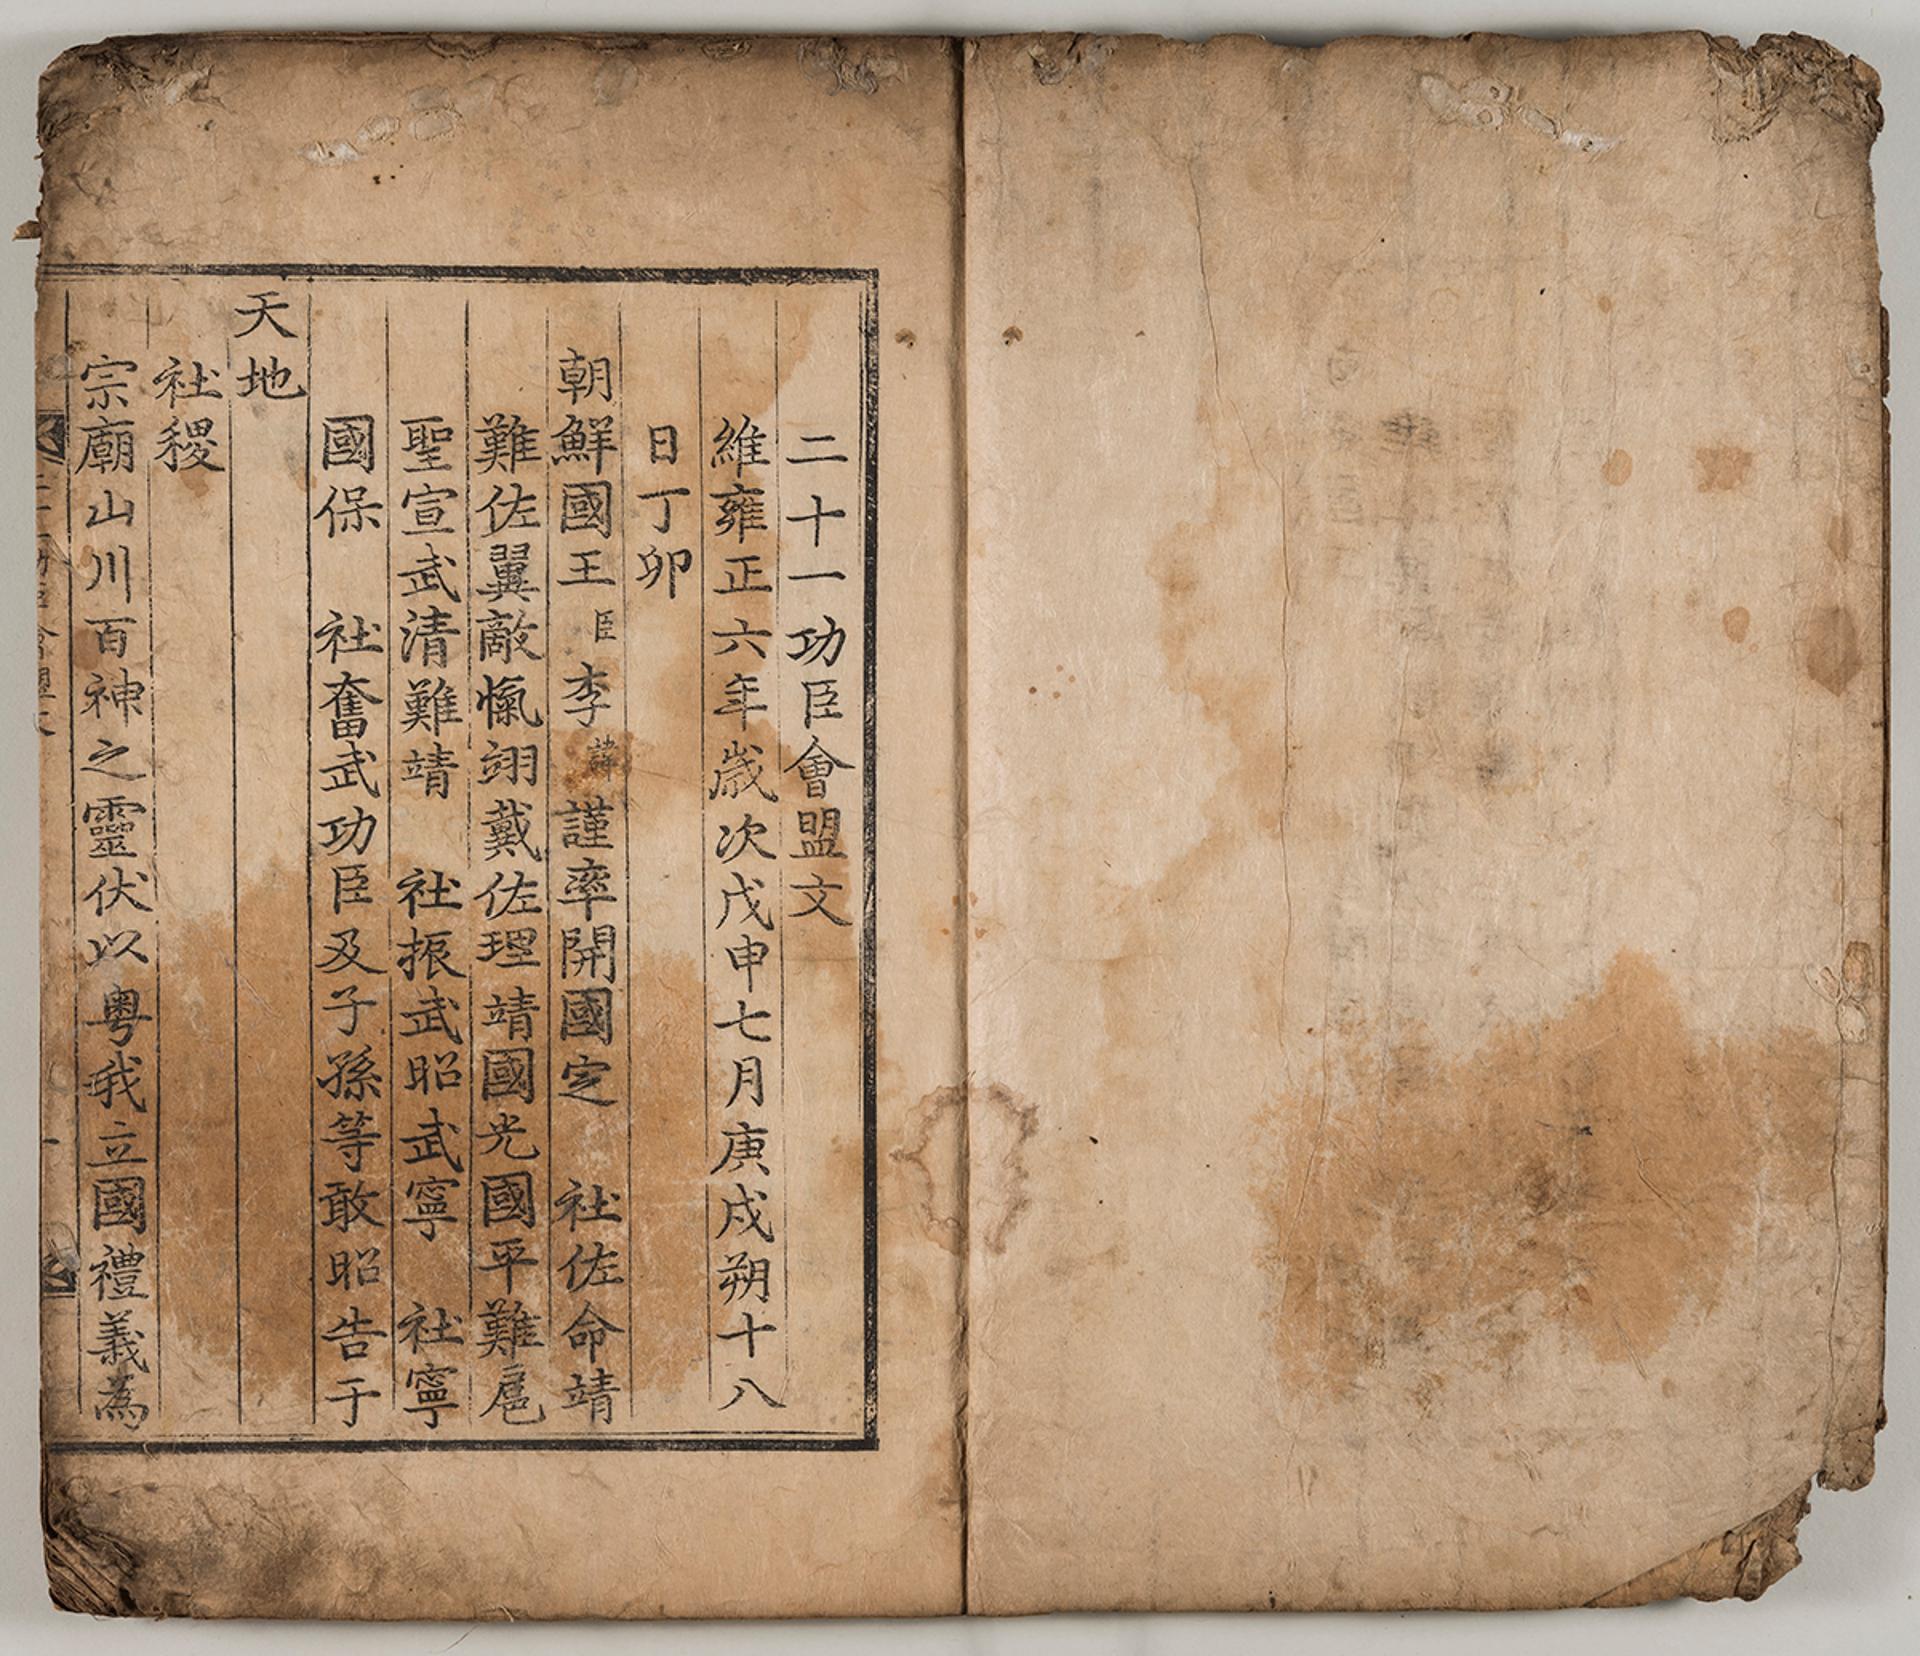 二十一功臣會盟文
維雍正六年歲次戊申七月庚戌朔十八
日丁卯
朝鮮國王臣李諱謹率開國定 社佐命靖
難佐翼敵愾翊戴佐理靖國光國平難扈
聖宣武清難靖 社振武昭武寧 社寧
國保 社奮武功臣及子孫等敢昭告于
天地
社稷
宗廟山川百神之靈伏以粤我立國禮義為